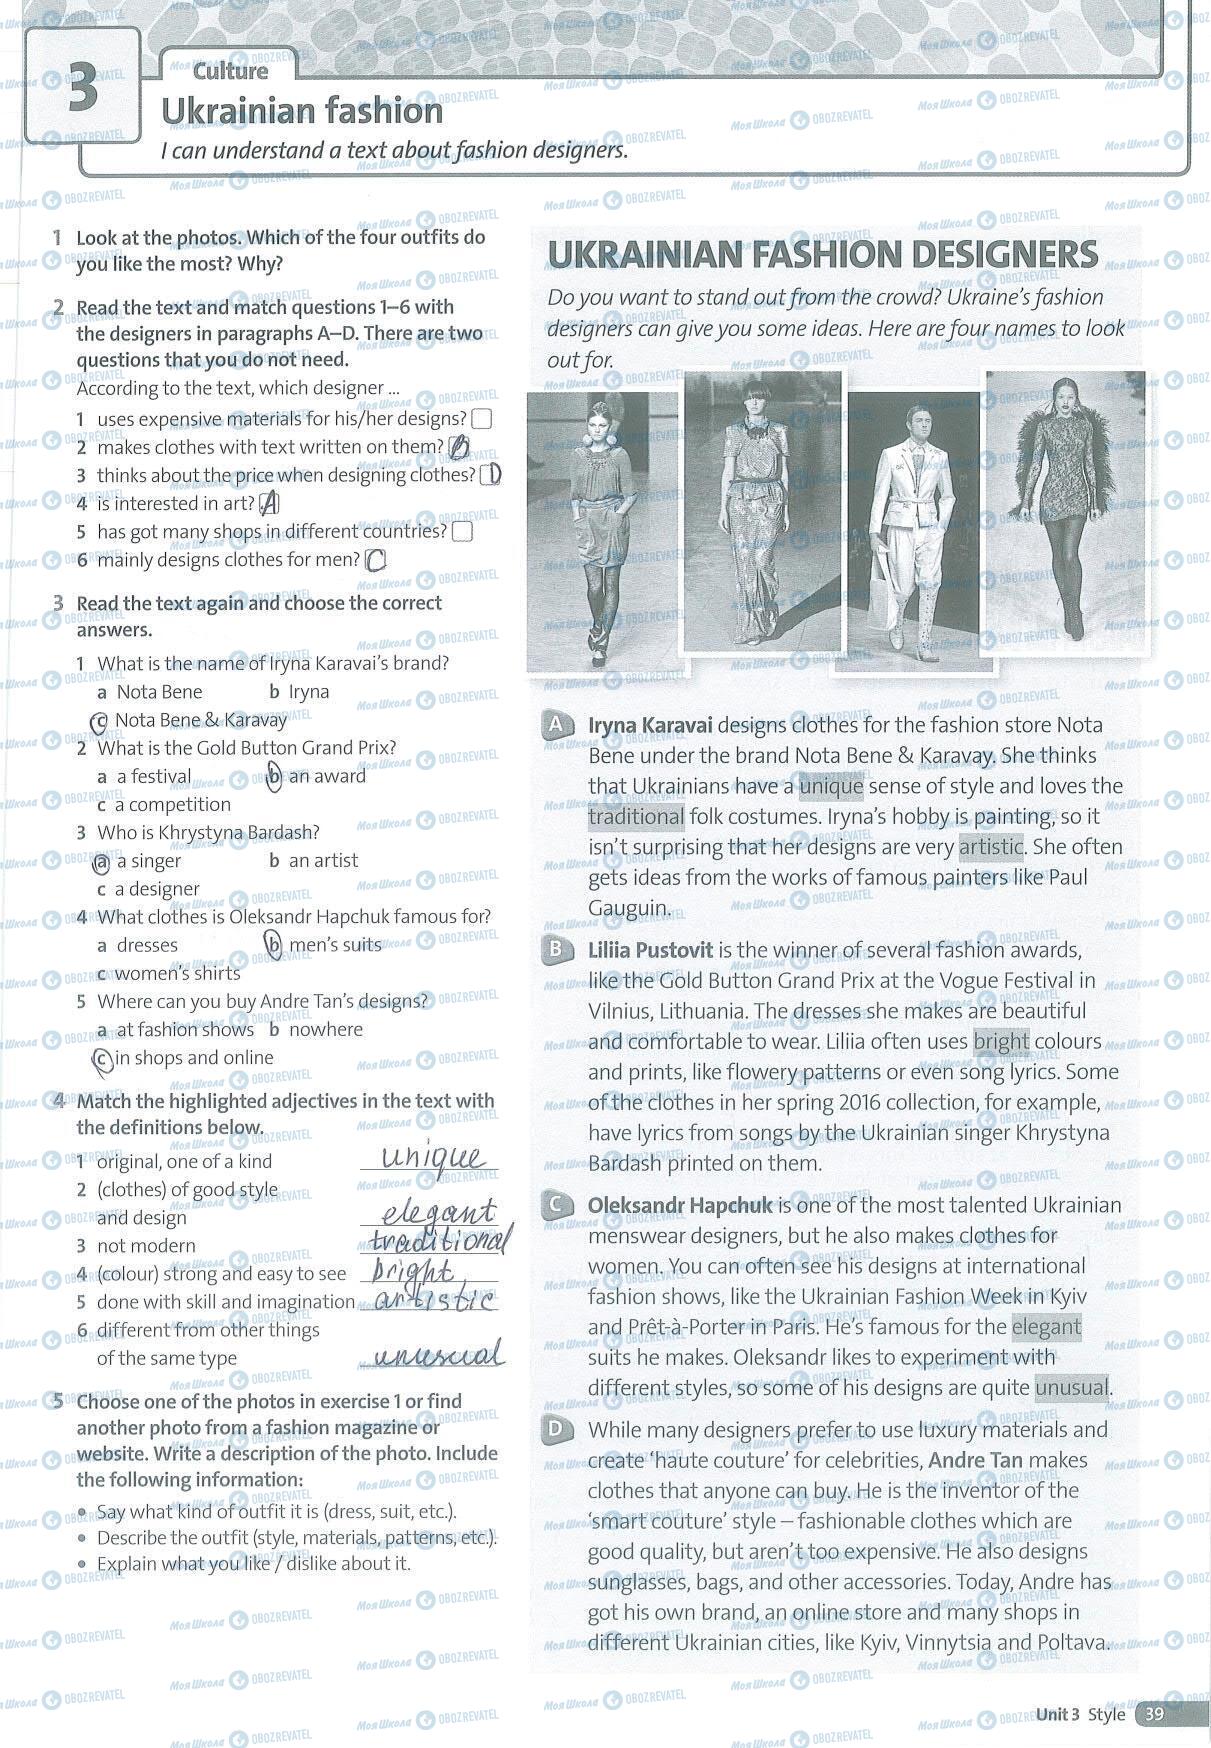 3
Culture
Ukrainian fashion
I can understand a text about fashion designers.
1 Look at the photos. Which of the four outfits do
you like the most? Why?
2 Read the text and match questions 1–6 with
the designers in paragraphs A–D. There are two
questions that you do not need.
According to the text, which designer ...
1 uses expensive materials for his/her designs?
2 makes clothes with text written on them? B
3 thinks about the price when designing clothes? D
4 is interested in art? A
5 has got many shops in different countries?
6 mainly designs clothes for men? C
3 Read the text again and choose the correct
answers.
1 What is the name of Iryna Karavai's brand?
a Nota Bene b Iryna
c Nota Bene & Karavay
2 What is the Gold Button Grand Prix?
a a festival b an award
c a competition
3 Who is Khrystyna Bardash?
a a singer b an artist
c a designer
4 What clothes is Oleksandr Hapchuk famous for?
a dresses b men's suits
c women's shirts
5 Where can you buy Andre Tan's designs?
a at fashion shows b nowhere
c in shops and online
4 Match the highlighted adjectives in the text with
the definitions below.
1 original, one of a kind unique
2 (clothes) of good style
and design elegant
3 not modern traditional
4 (colour) strong and easy to see bright
5 done with skill and imagination artistic
6 different from other things
of the same type unusual
5 Choose one of the photos in exercise 1 or find
another photo from a fashion magazine or
website. Write a description of the photo. Include
the following information:
• Say what kind of outfit it is (dress, suit, etc.).
• Describe the outfit (style, materials, patterns, etc.).
• Explain what you like / dislike about it.
UKRAINIAN FASHION DESIGNERS
Do you want to stand out from the crowd? Ukraine's fashion
designers can give you some ideas. Here are four names to look
out for.
A Iryna Karavai designs clothes for the fashion store Nota
Bene under the brand Nota Bene & Karavay. She thinks
that Ukrainians have a unique sense of style and loves the
traditional folk costumes. Iryna's hobby is painting, so it
isn't surprising that her designs are very artistic. She often
gets ideas from the works of famous painters like Paul
Gauguin.
B Liliia Pustovit is the winner of several fashion awards,
like the Gold Button Grand Prix at the Vogue Festival in
Vilnius, Lithuania. The dresses she makes are beautiful
and comfortable to wear. Liliia often uses bright colours
and prints, like flowery patterns or even song lyrics. Some
of the clothes in her spring 2016 collection, for example,
have lyrics from songs by the Ukrainian singer Khrystyna
Bardash printed on them.
C Oleksandr Hapchuk is one of the most talented Ukrainian
menswear designers, but he also makes clothes for
women. You can often see his designs at international
fashion shows, like the Ukrainian Fashion Week in Kyiv
and Prêt-à-Porter in Paris. He's famous for the elegant
suits he makes. Oleksandr likes to experiment with
different styles, so some of his designs are quite unusual.
D While many designers prefer to use luxury materials and
create 'haute couture' for celebrities, Andre Tan makes
clothes that anyone can buy. He is the inventor of the
'smart couture' style – fashionable clothes which are
good quality, but aren't too expensive. He also designs
sunglasses, bags, and other accessories. Today, Andre has
got his own brand, an online store and many shops in
different Ukrainian cities, like Kyiv, Vinnytsia and Poltava.
Unit 3 Style 39
МояШкола OBOZREVATEL